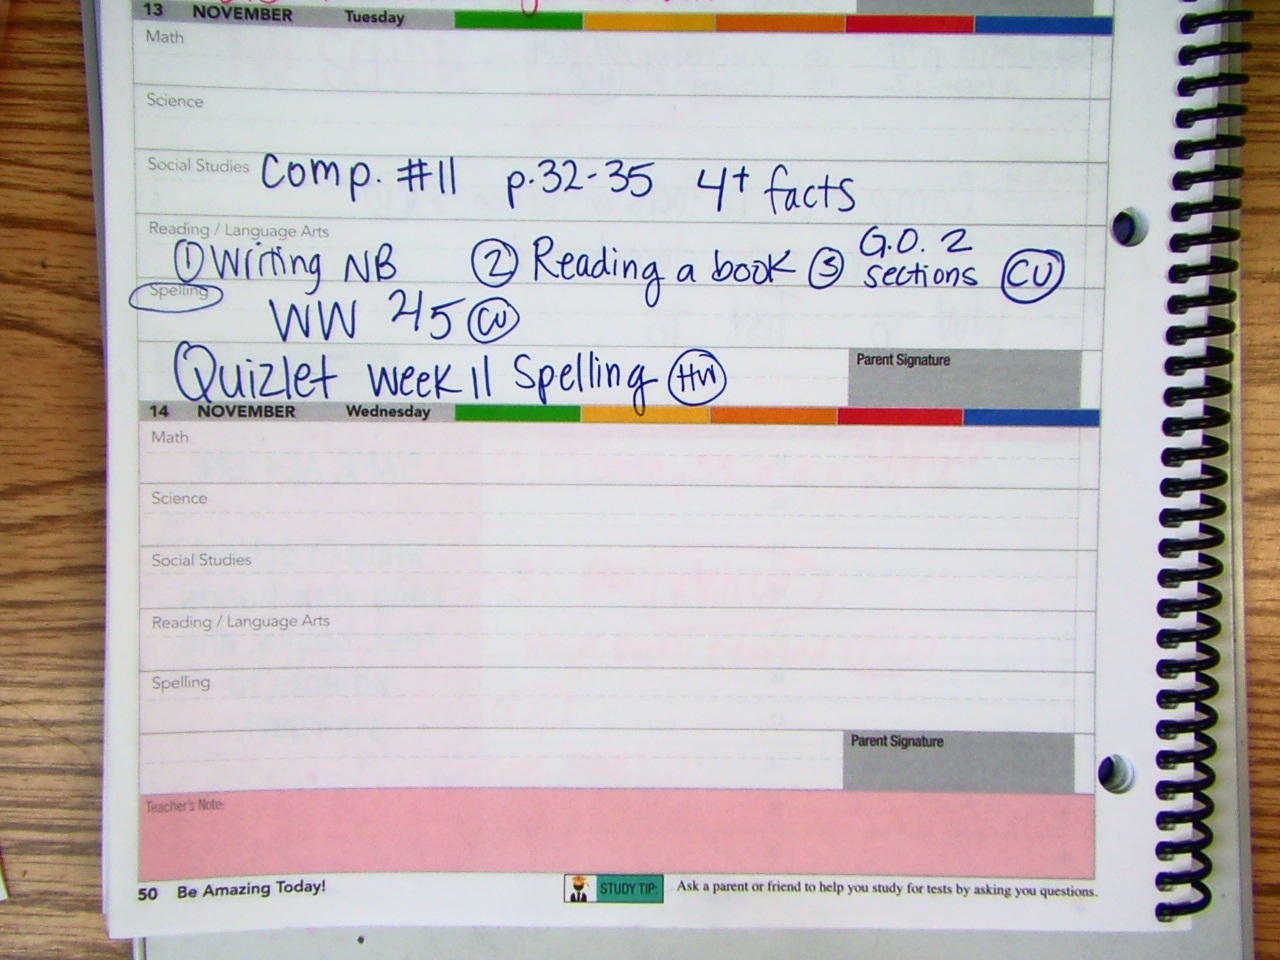 13 NOVEMBER Tuesday
Math
Science
Social Studies Comp. #11 p.32-35 4+ facts
Reading / Language Arts
①Writing NB ② Reading a book ③ G.O. 2 sections CW
Spelling
WW 245 CW
Quizlet week 11 Spelling HW
Parent Signature
14 NOVEMBER Wednesday
Math
Science
Social Studies
Reading / Language Arts
Spelling
Parent Signature
Teacher's Note:
50 Be Amazing Today!
STUDY TIP: Ask a parent or friend to help you study for tests by asking you questions.